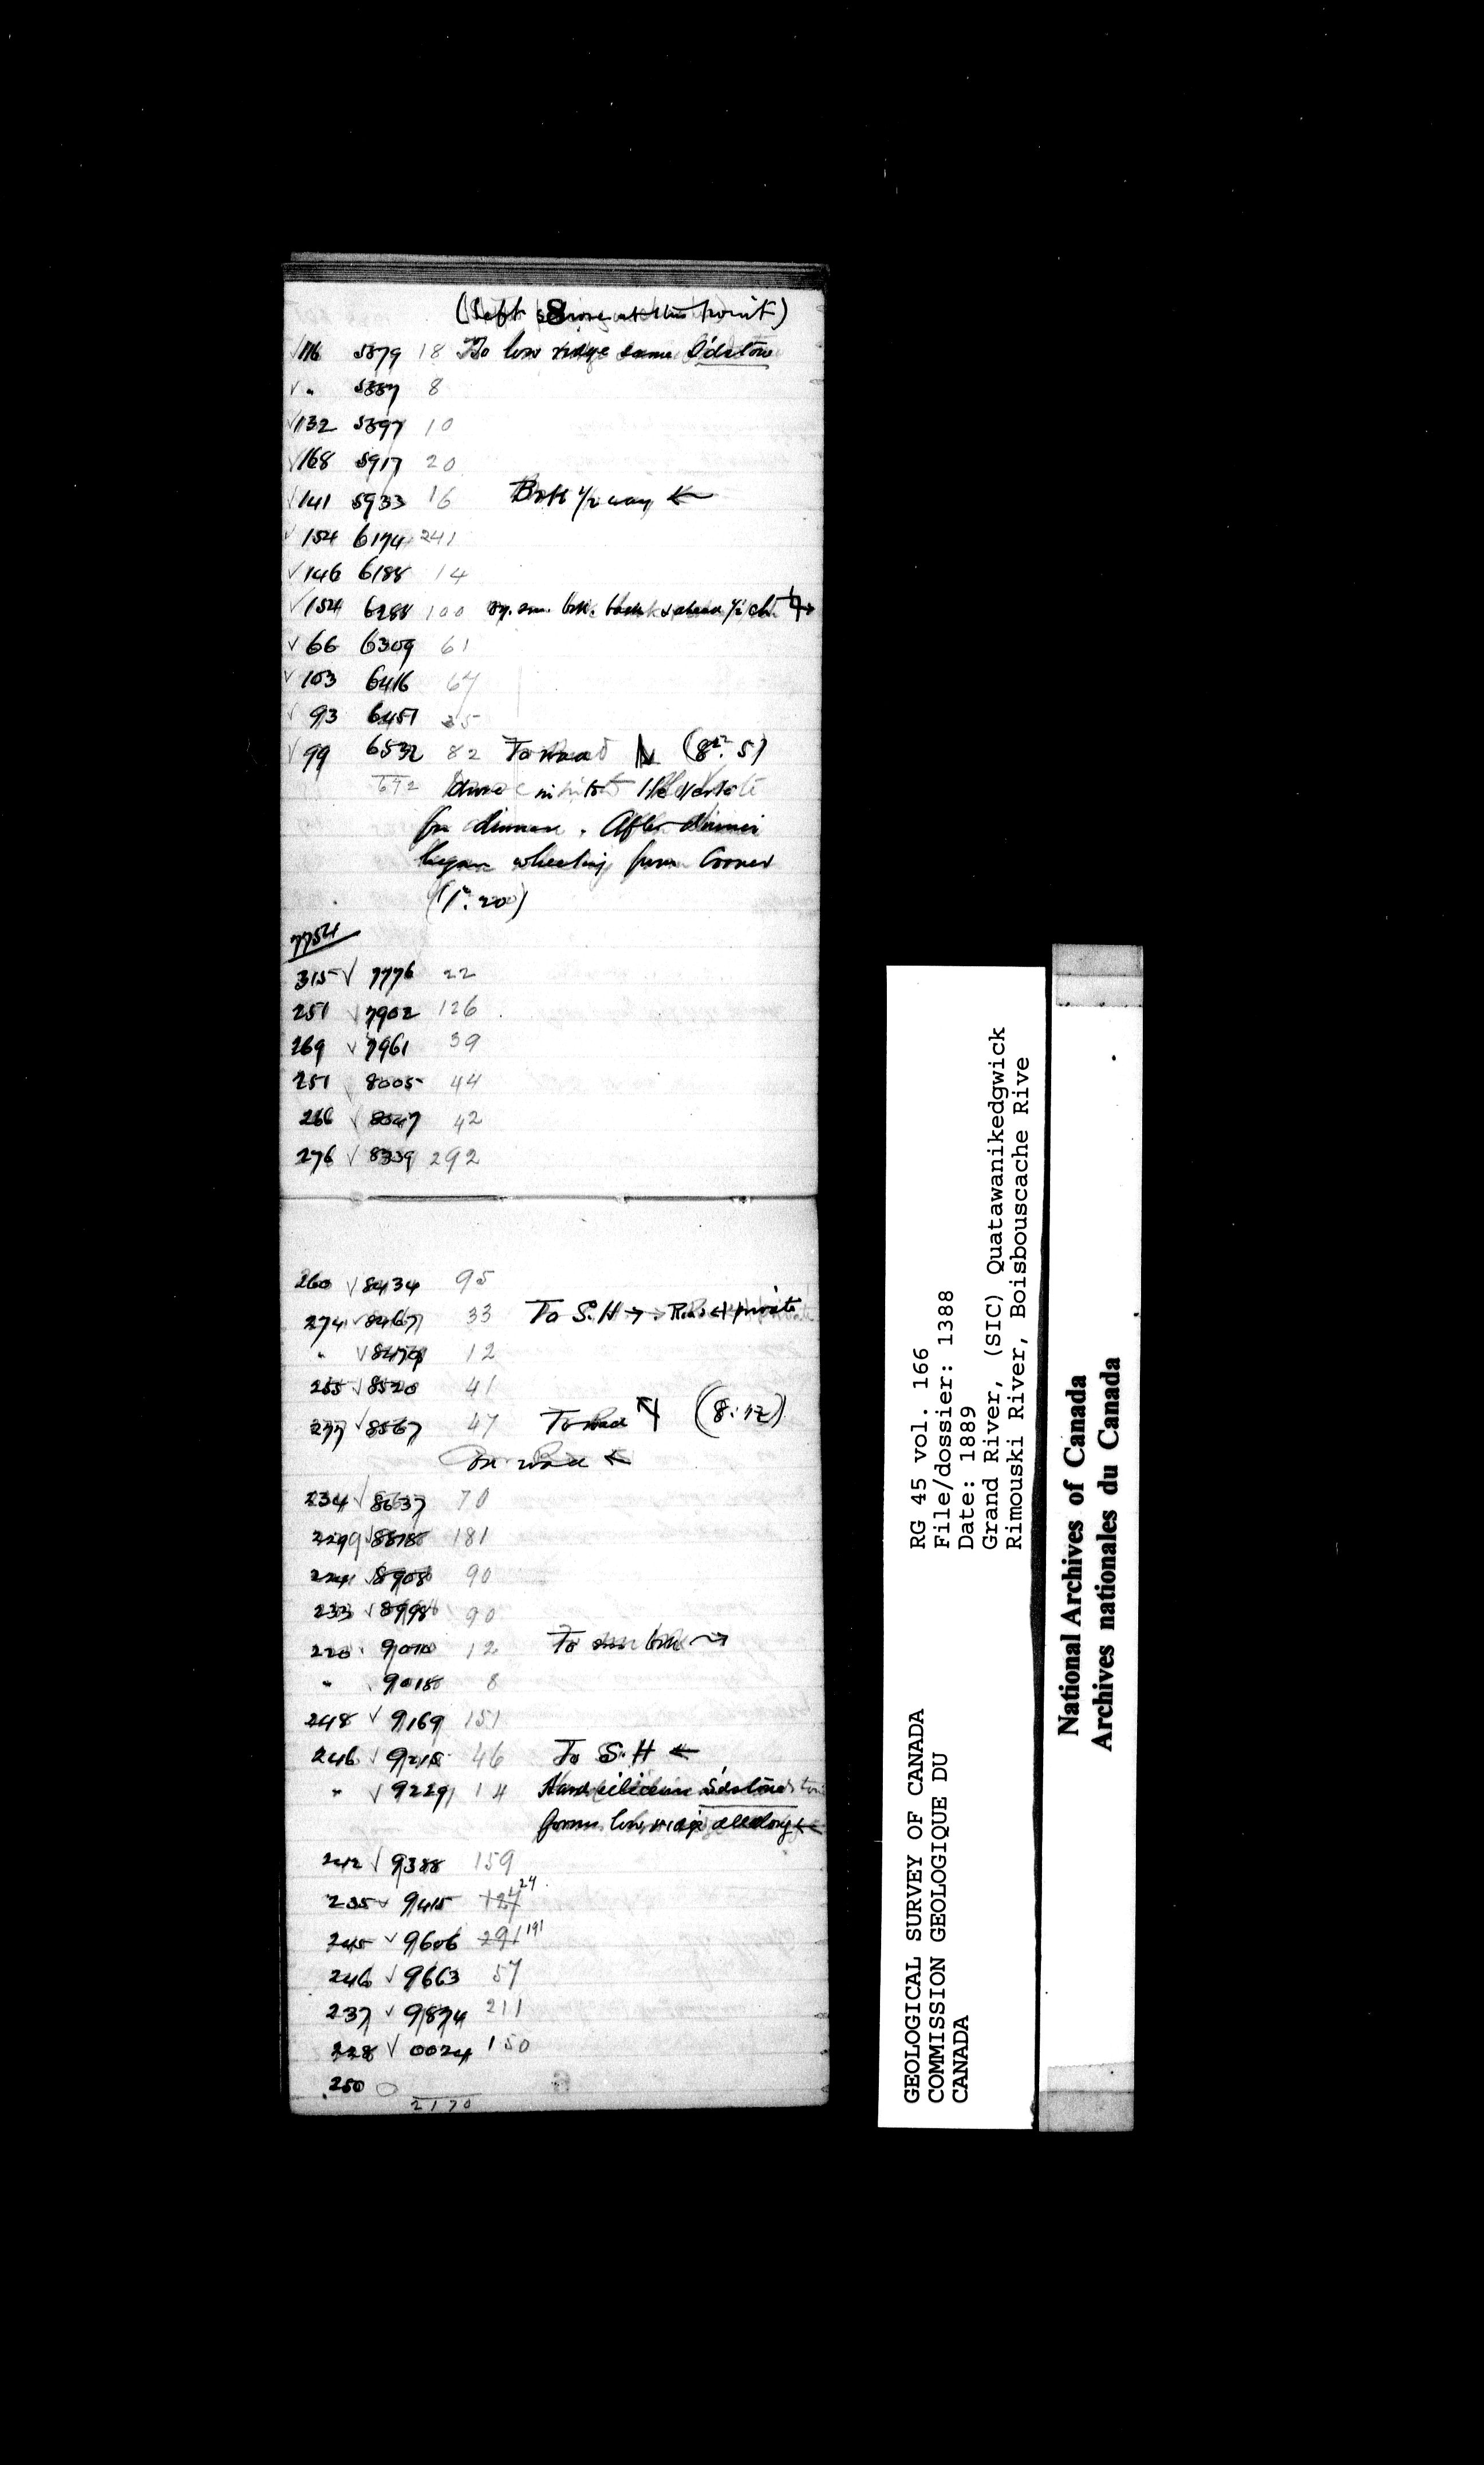 8
(Left shore at this point)
√116 5879 18 To low ridge same S'dstone
√ " 5887 8
√132 5897 10
√168 5917 20
√141 5933 16 Both 1/2 way ←
√154 6174 241
√146 6188 14
√154 6288 100 sm. brk. back & ahead 1/2 ch.
√66 6309 61
√103 6416 67
√93 6451 35
√99 6532 82 To road (8:5)
672 Drove
for dinner. After dinner
began wheeling from Corner
(1:20)
7754
315 √ 7776 22
251 √ 7902 126
269 √ 7961 39
251 √ 8005 44
266 √ 8047 42
276 √ 8339 292
260 √ 8434 95
274 √ 8467 33 To S.H → Road private
" √ 8479 12
255 √ 8520 41
277 √ 8567 47 To Road (8:12)
On road ←
234 √ 8637 70
229 √ 8818 181
224 √ 8908 90
233 √ 8998 90
220 9010 12 To sm brk →
" 9018 8
248 √ 9169 151
246 √ 9215 46 To S.H ←
" √ 9229 14 Hard silicious s'dstone
forms low ridge all along ←
242 √ 9388 159
235 √ 9415 127 27
245 √ 9606 291 191
246 √ 9663 57
237 √ 9874 211
228 √ 0024 150
250
2170
GEOLOGICAL SURVEY OF CANADA
COMMISSION GEOLOGIQUE DU
CANADA
RG 45 vol. 166
File/dossier: 1388
Date: 1889
Grand River, (SIC) Quatawanikedgwick
Rimouski River, Boisbouscache Rive
National Archives of Canada
Archives nationales du Canada